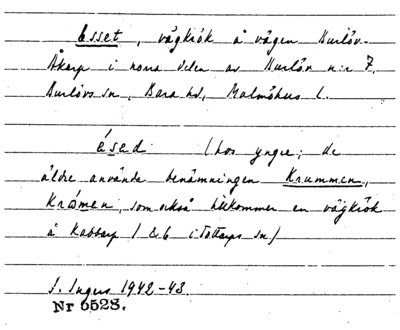 Esset, vägkrök å vägen Burlöv-
Åkarp i norra delen av Burlöv n:r 7.
Burlövs sn, Bara hd, Malmöhus l.
ésed (hos yngre; de
äldre använda benämningen Krummen,
Krómen, som också tillkommer en vägkrök
å Kabbarp 1 & 6 i Tottarps sn)
S. Ingers 1942-43.
Nr 5528.